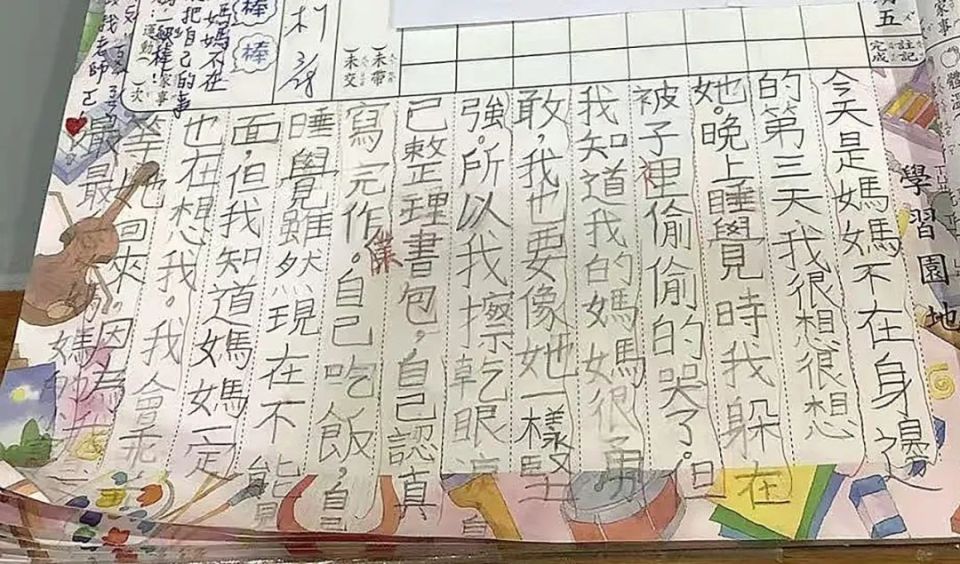 五
註記
完成
未帶
未交
學習園地
今天是媽媽不在身邊
的第三天我很想很想
她。晚上睡覺時我躲在
被子裡偷偷的哭了。但
我知道我的媽媽很勇
敢,我也要像她一樣堅
強。所以我擦乾眼淚
己整理書包,自己認真
寫完作業。自己吃飯,自
睡覺雖然現在不能
面,但我知道媽媽一定
也在想我。我會乖
等她回來。因為
最最
媽
棒
棒
媽媽不在
把自己的事
一級棒!
老師
運動
家事
次